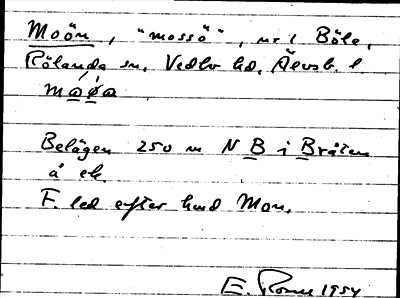 Moön, "mossö", nr 1 Böle,
Rölanda sn, Vedbo hd, Älvsb. l.
Belägen 250 m N B i Bråten
å ek.
F. led efter hund Mon.
E. 1954